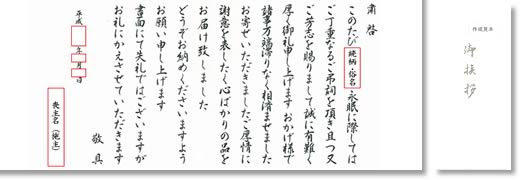 粛啓
このたび 続柄・俗名 永眠に際しては
ご丁重なるご弔詞を頂き且つ又
ご芳志を賜りまして誠に有難く
厚く御礼申し上げます おかげ様で
諸事万端滞りなく相済ませました
お寄せいただきましたご厚情に
謝意を表したく心ばかりの品を
お届け致しました
どうぞお納めくださいますよう
お願い申し上げます
書面にて失礼ではございますが
お礼にかえさせていただきます
敬具
平成 年 月 日
喪主名(施主)
御挨拶